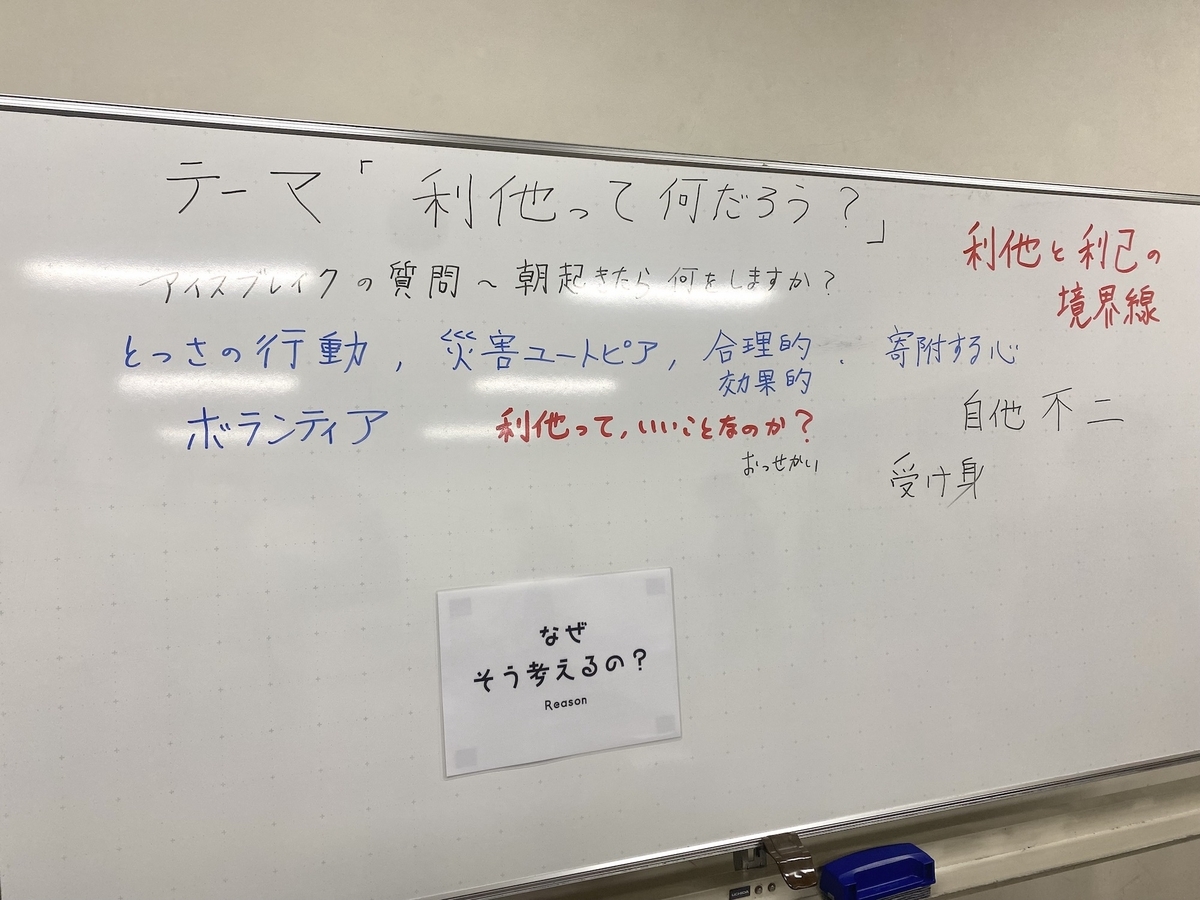 テーマ「利他って何だろう？」
アイスブレイクの質問～朝起きたら何をしますか？
利他と利己の
境界線
とっさの行動, 災害ユートピア, 合理的
効果的
寄附する心
ボランティア
利他って,いいことなのか？
おっせかい
自他不二
受け身
なぜ
そう考えるの？
Reason